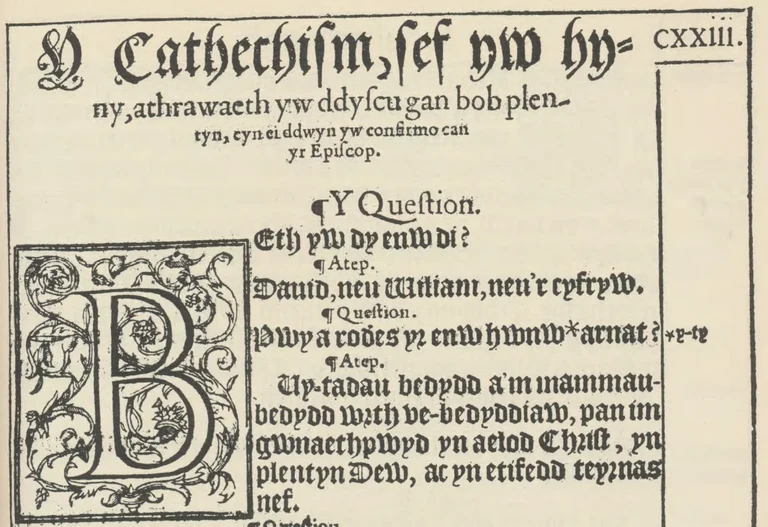 Y Cathechiſm, ſef yw hy⸗
CXXiii.
ny, athrawaeth yw ddyſcu gan bob plen-
tyn, cyn ei ddwyn yw confirmo can
yr Epiſcop.
¶Y Queſtion.
BEth yw dy enw di?
¶Atep.
Dauid, neu Wiliam, neu'r cyfryw.
¶Queſtion.
Pwy a rodes yr enw hwnw*arnat?
*y-ty
¶Atep.
Vy-tadau bedydd a'm mammau-
bedydd wrth ve-bedyddiaw, pan im
gwnaethpwyd yn aelod Chriſt, yn
plentyn Dew, ac yn etifedd teyrnas
nef.
¶Queſtion